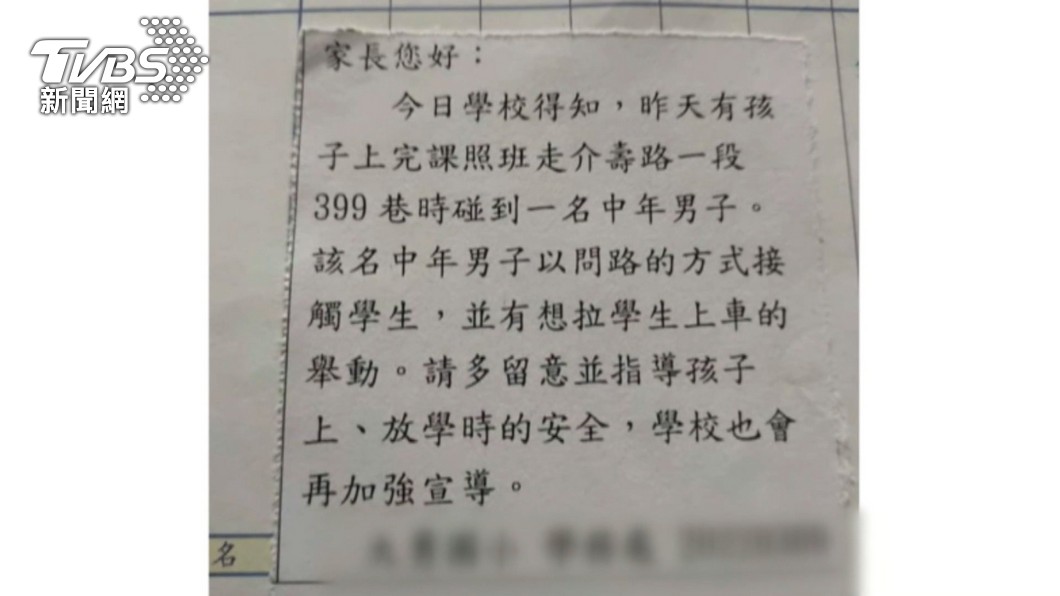 TVBS
新聞網
家長您好：
今日學校得知，昨天有孩
子上完課照班走介壽路一段
399巷時碰到一名中年男子。
該名中年男子以問路的方式接
觸學生，並有想拉學生上車的
舉動。請多留意並指導孩子
上、放學時的安全，學校也會
再加強宣導。
名